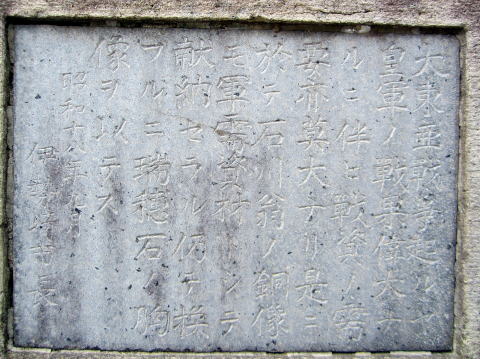 大東亜戦争起ルイ
皇軍ノ戦果偉大ナ
ルニ伴ヒ戦資ノ需
要亦莫大ナリ是ニ
於テ石川翁ノ銅像
モ軍需資材トシテ
献納セラル仍テ換
フルニ瑞穂石ノ胸
像ヲ以テス
昭和十八年九月
伊勢崎市長